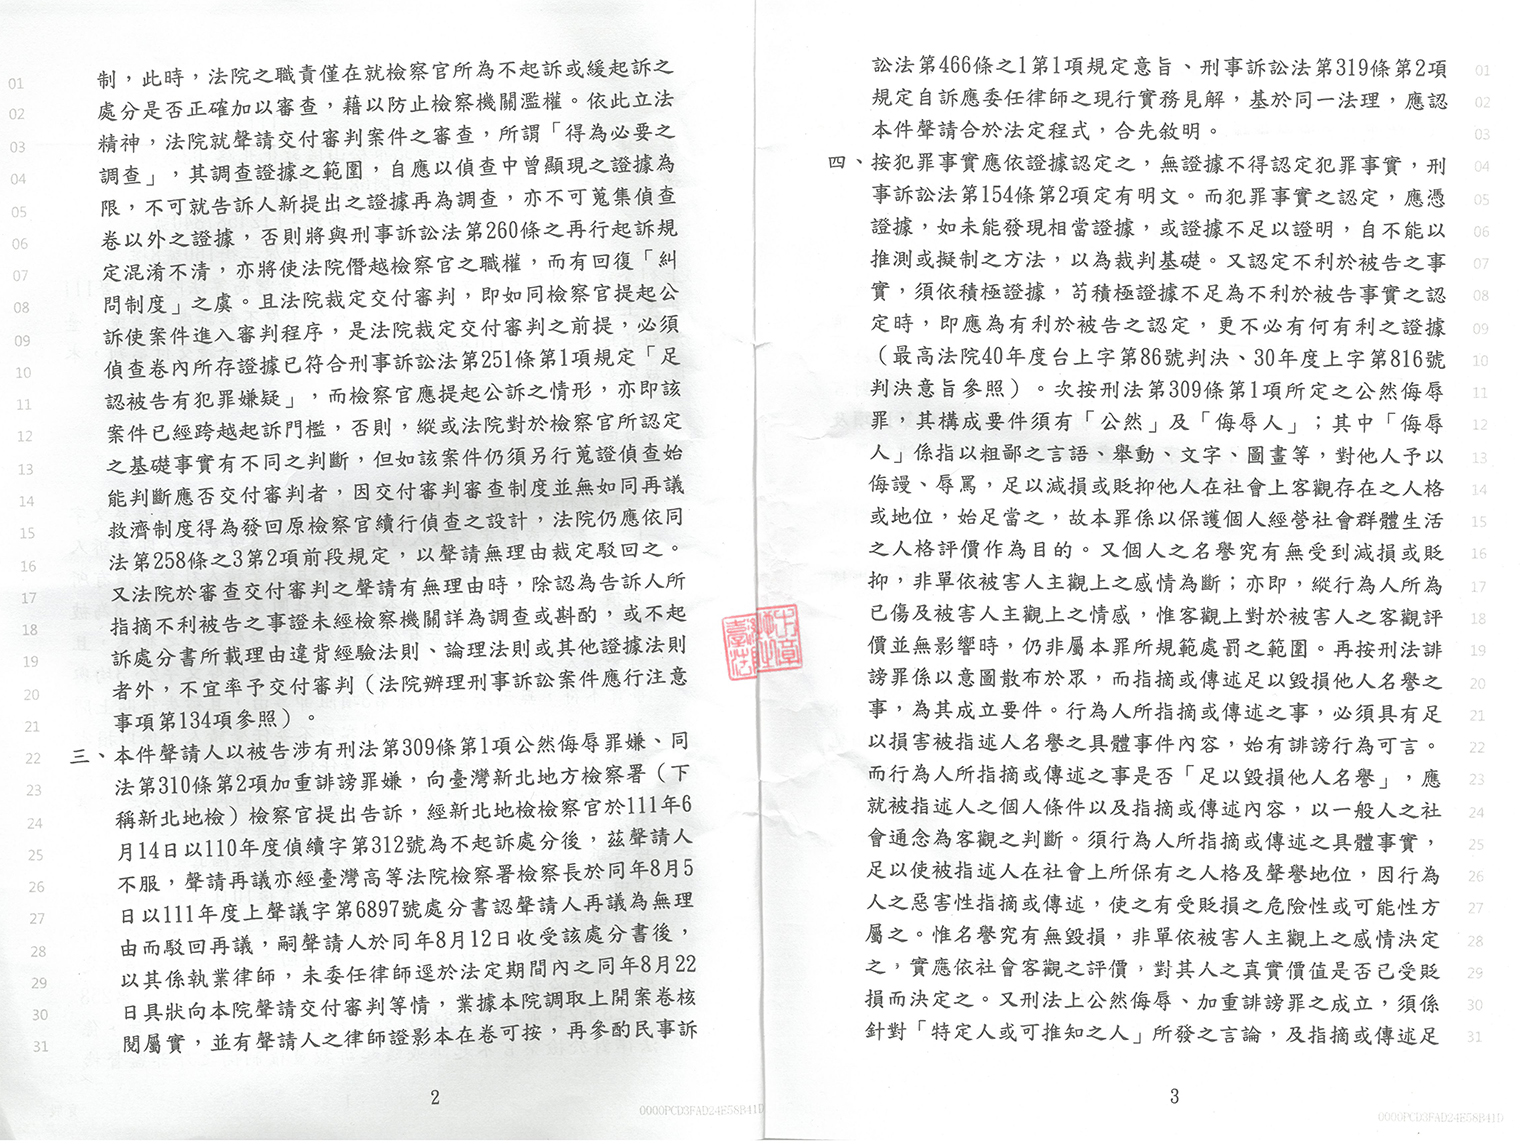 01 制，此時，法院之職責僅在就檢察官所為不起訴或緩起訴之
02 處分是否正確加以審查，藉以防止檢察機關濫權。依此立法
03 精神，法院就聲請交付審判案件之審查，所謂「得為必要之
04 調查」，其調查證據之範圍，自應以偵查中曾顯現之證據為
05 限，不可就告訴人新提出之證據再為調查，亦不可蒐集偵查
06 卷以外之證據，否則將與刑事訴訟法第260條之再行起訴規
07 定混淆不清，亦將使法院僭越檢察官之職權，而有回復「糾
08 問制度」之虞。且法院裁定交付審判，即如同檢察官提起公
09 訴使案件進入審判程序，是法院裁定交付審判之前提，必須
10 偵查卷內所存證據已符合刑事訴訟法第251條第1項規定「足
11 認被告有犯罪嫌疑」，而檢察官應提起公訴之情形，亦即該
12 案件已經跨越起訴門檻，否則，縱或法院對於檢察官所認定
13 之基礎事實有不同之判斷，但如該案件仍須另行蒐證偵查始
14 能判斷應否交付審判者，因交付審判審查制度並無如同再議
15 救濟制度得為發回原檢察官續行偵查之設計，法院仍應依同
16 法第258條之3第2項前段規定，以聲請無理由裁定駁回之。
17 又法院於審查交付審判之聲請有無理由時，除認為告訴人所
18 指摘不利被告之事證未經檢察機關詳為調查或斟酌，或不起
19 訴處分書所載理由違背經驗法則、論理法則或其他證據法則
20 者外，不宜率予交付審判（法院辦理刑事訴訟案件應行注意
21 事項第134項參照）。
22 三、本件聲請人以被告涉有刑法第309條第1項公然侮辱罪嫌、同
23 法第310條第2項加重誹謗罪嫌，向臺灣新北地方檢察署（下
24 稱新北地檢）檢察官提出告訴，經新北地檢檢察官於111年6
25 月14日以110年度偵續字第312號為不起訴處分後，茲聲請人
26 不服，聲請再議亦經臺灣高等法院檢察署檢察長於同年8月5
27 日以111年度上聲議字第6897號處分書認聲請人再議為無理
28 由而駁回再議，嗣聲請人於同年8月12日收受該處分書後，
29 以其係執業律師，未委任律師逕於法定期間內之同年8月22
30 日具狀向本院聲請交付審判等情，業據本院調取上開案卷核
31 閱屬實，並有聲請人之律師證影本在卷可按，再參酌民事訴
2
0000PCD3FAD24E58B41D
訟法第466條之1第1項規定意旨、刑事訴訟法第319條第2項 01
規定自訴應委任律師之現行實務見解，基於同一法理，應認 02
本件聲請合於法定程式，合先敘明。 03
四、按犯罪事實應依證據認定之，無證據不得認定犯罪事實，刑 04
事訴訟法第154條第2項定有明文。而犯罪事實之認定，應憑 05
證據，如未能發現相當證據，或證據不足以證明，自不能以 06
推測或擬制之方法，以為裁判基礎。又認定不利於被告之事 07
實，須依積極證據，苟積極證據不足為不利於被告事實之認 08
定時，即應為有利於被告之認定，更不必有何有利之證據 09
（最高法院40年度台上字第86號判決、30年度上字第816號 10
判決意旨參照）。次按刑法第309條第1項所定之公然侮辱 11
罪，其構成要件須有「公然」及「侮辱人」；其中「侮辱 12
人」係指以粗鄙之言語、舉動、文字、圖畫等，對他人予以 13
侮謾、辱罵，足以減損或貶抑他人在社會上客觀存在之人格 14
或地位，始足當之，故本罪係以保護個人經營社會群體生活 15
之人格評價作為目的。又個人之名譽究有無受到減損或貶 16
抑，非單依被害人主觀上之感情為斷；亦即，縱行為人所為 17
已傷及被害人主觀上之情感，惟客觀上對於被害人之客觀評 18
價並無影響時，仍非屬本罪所規範處罰之範圍。再按刑法誹 19
謗罪係以意圖散布於眾，而指摘或傳述足以毀損他人名譽之 20
事，為其成立要件。行為人所指摘或傳述之事，必須具有足 21
以損害被指述人名譽之具體事件內容，始有誹謗行為可言。 22
而行為人所指摘或傳述之事是否「足以毀損他人名譽」，應 23
就被指述人之個人條件以及指摘或傳述內容，以一般人之社 24
會通念為客觀之判斷。須行為人所指摘或傳述之具體事實， 25
足以使被指述人在社會上所保有之人格及聲譽地位，因行為 26
人之惡害性指摘或傳述，使之有受貶損之危險性或可能性方 27
屬之。惟名譽究有無毀損，非單依被害人主觀上之感情決定 28
之，實應依社會客觀之評價，對其人之真實價值是否已受貶 29
損而決定之。又刑法上公然侮辱、加重誹謗罪之成立，須係 30
針對「特定人或可推知之人」所發之言論，及指摘或傳述足 31
3
0000PCD3FAD24E58B41D